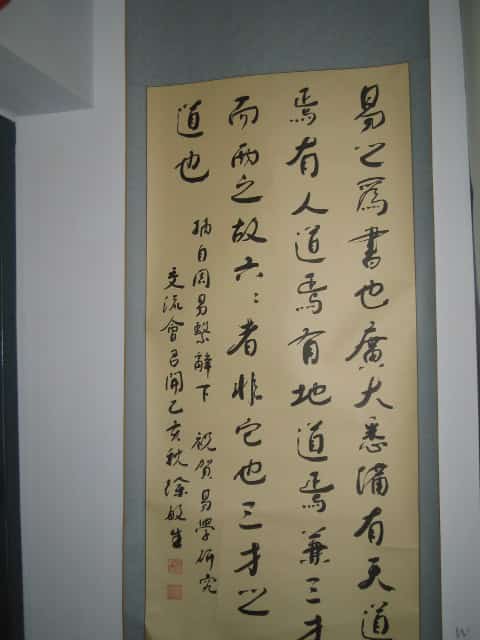 易之爲書也廣大悉備有天道
焉有人道焉有地道焉兼三才
而兩之故六〻者非它也三才之
道也
摘自周易繫辭下 祝賀易學研究
交流會召開乙亥秋徐敏生